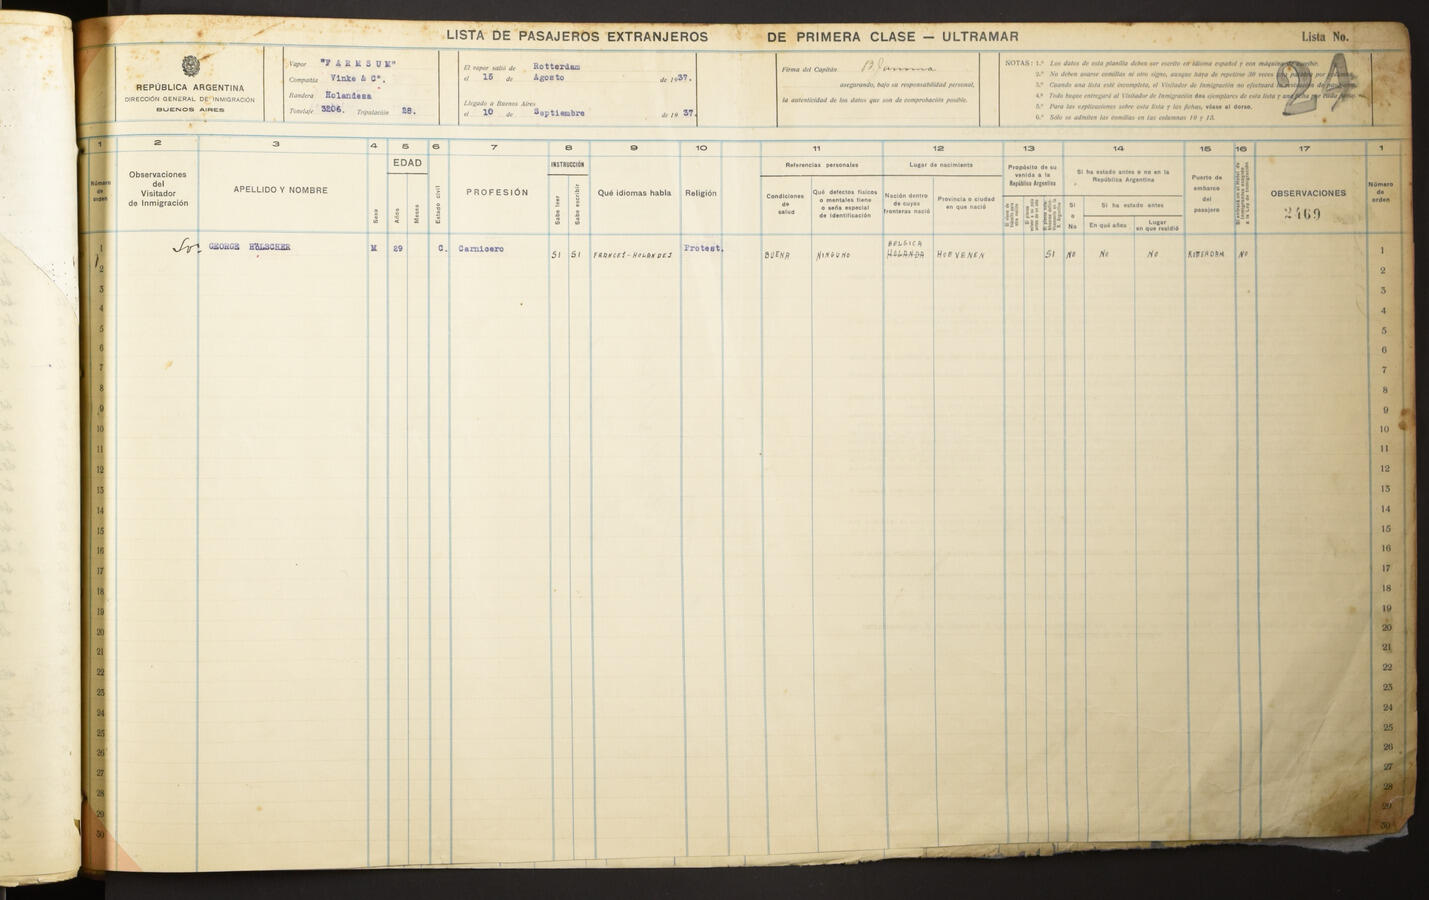 LISTA DE PASAJEROS EXTRANJEROS DE PRIMERA CLASE — ULTRAMAR Lista No.
24
REPÚBLICA ARGENTINA
DIRECCIÓN GENERAL DE INMIGRACIÓN
BUENOS AIRES
Vapor "FARMSUM"
Compañía Vinke & Cº.
Bandera Holandesa
Tonelaje 3206. Tripulación 28.
El vapor salió de Rotterdam
el 15 de Agosto de 1937.
Llegado a Buenos Aires
el 10 de Septiembre de 1937.
Firma del Capitán
asegurando, bajo su responsabilidad personal,
la autenticidad de los datos que son de comprobación posible.
NOTAS: 1.ª Los datos de esta planilla deben ser escrito en idioma español y con máquina de escribir.
2.ª No deben usarse comillas ni otro signo, aunque haya de repetirse 30 veces una palabra por columna.
3.ª Cuando una lista esté incompleta, el Visitador de Inmigración no efectuará la
4.ª Todo buque entregará al Visitador de Inmigración dos ejemplares de esta lista y una ficha por cada
5.ª Para las explicaciones sobre esta lista y las fichas, véase al dorso.
6.ª Sólo se admiten las comillas en las columnas 10 y 15.
1 2 3 4 5 6 7 8 9 10 11 12 13 14 15 16 17 1
Número de orden
Observaciones
del
Visitador
de Inmigración
APELLIDO Y NOMBRE
Sexo
EDAD
Años
Meses
Estado civil
PROFESIÓN
INSTRUCCIÓN
Sabe leer
Sabe escribir
Qué idiomas habla
Religión
Referencias personales
Condiciones
de
salud
Qué defectos físicos
o mentales tiene
o seña especial
de identificación
Lugar de nacimiento
Nación dentro
de cuyas
fronteras nació
Provincia o ciudad
en que nació
Propósito de su
venida a la
República Argentina
Si ha estado antes o no en la
República Argentina
Si
o
No
Si ha estado antes
En qué años
Lugar
en que residió
Puerto de
embarco
del
pasajero
OBSERVACIONES
2469
Número
de
orden
BELGICA
1 GEORGE HÖLSCHER M 29 C. Carnicero SI SI FRANCES-HOLANDES Protest. BUENA NINGUNO HOLANDA HOEVENEN SI NO NO NO ROTTERDAM NO 1
2 2
3 3
4 4
5 5
6 6
7 7
8 8
9 9
10 10
11 11
12 12
13 13
14 14
15 15
16 16
17 17
18 18
19 19
20 20
21 21
22 22
23 23
24 24
25 25
26 26
27 27
28 28
29 29
30 30